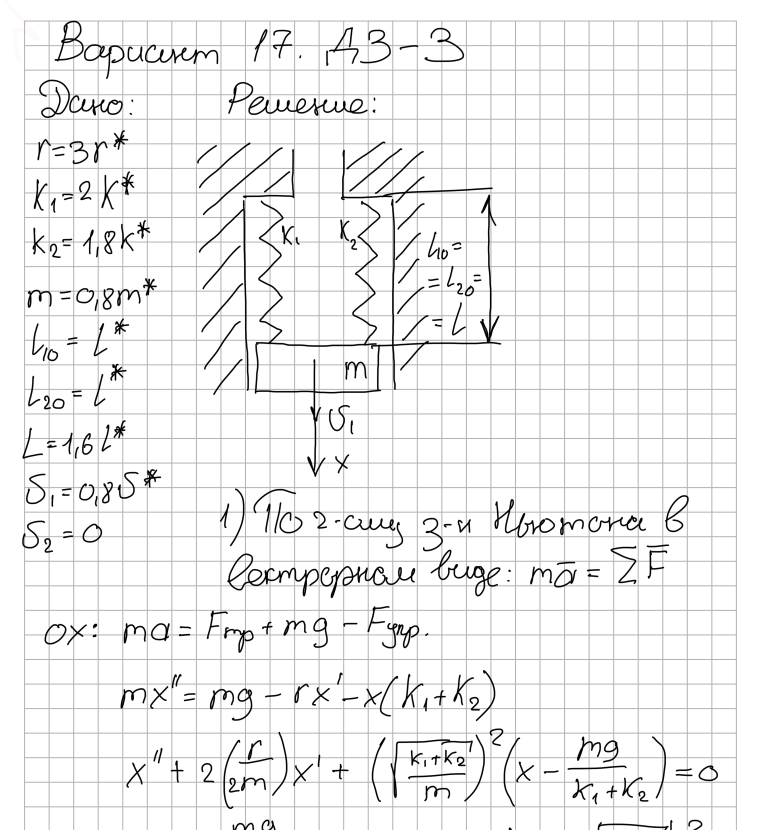 Вариант 17. ДЗ-3
Дано: Решение:
r=3r*
K₁=2K*
K₂=1,8K*
m=0,8m*
L₁₀=L*
L₂₀=L*
L=1,6L*
S₁=0,8S*
S₂=0
K₁ K₂
L₁₀=
=L₂₀=
=L
m
S₁
x
1) По 2-ому з-н Ньютона в
векторном виде: mā=∑F̄
ox: ma=Fтр+mg-Fупр.
mx''=mg-rx'-x(K₁+K₂)
x''+2(r/2m)x'+(√((K₁+K₂)/m))²(x-mg/(K₁+K₂))=0